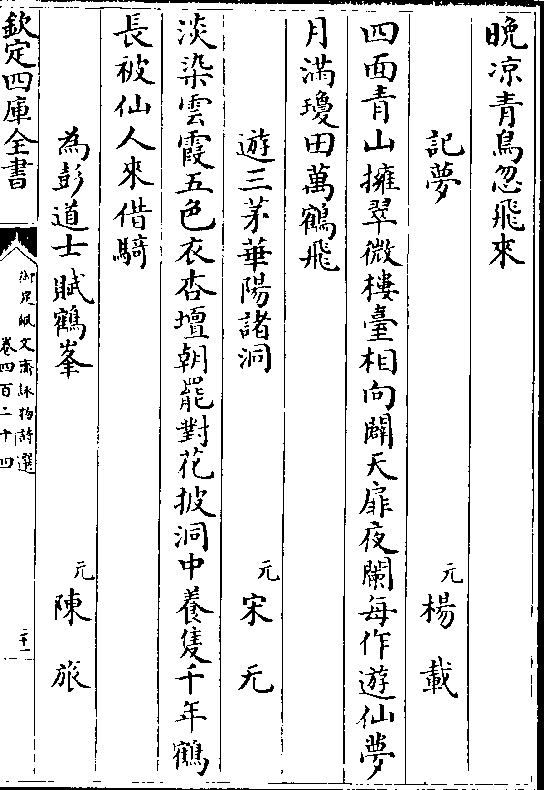 晚凉青鳥忽飛來
記夢 元 楊載
四面青山擁翠微樓臺相向闢天扉夜闌每作遊仙夢
月滿瓊田萬鶴飛
遊三茅華陽諸洞 元 宋无
淡染雲霞五色衣杏壇朝罷對花披洞中養隻千年鶴
長被仙人來借騎
為彭道士賦鶴峯 元 陳旅
欽定四庫全書
御定佩文齋詠物詩選
卷四百二十四
二十一